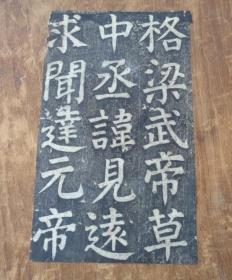 格梁武帝草
中丞諱見遠
求聞達元帝